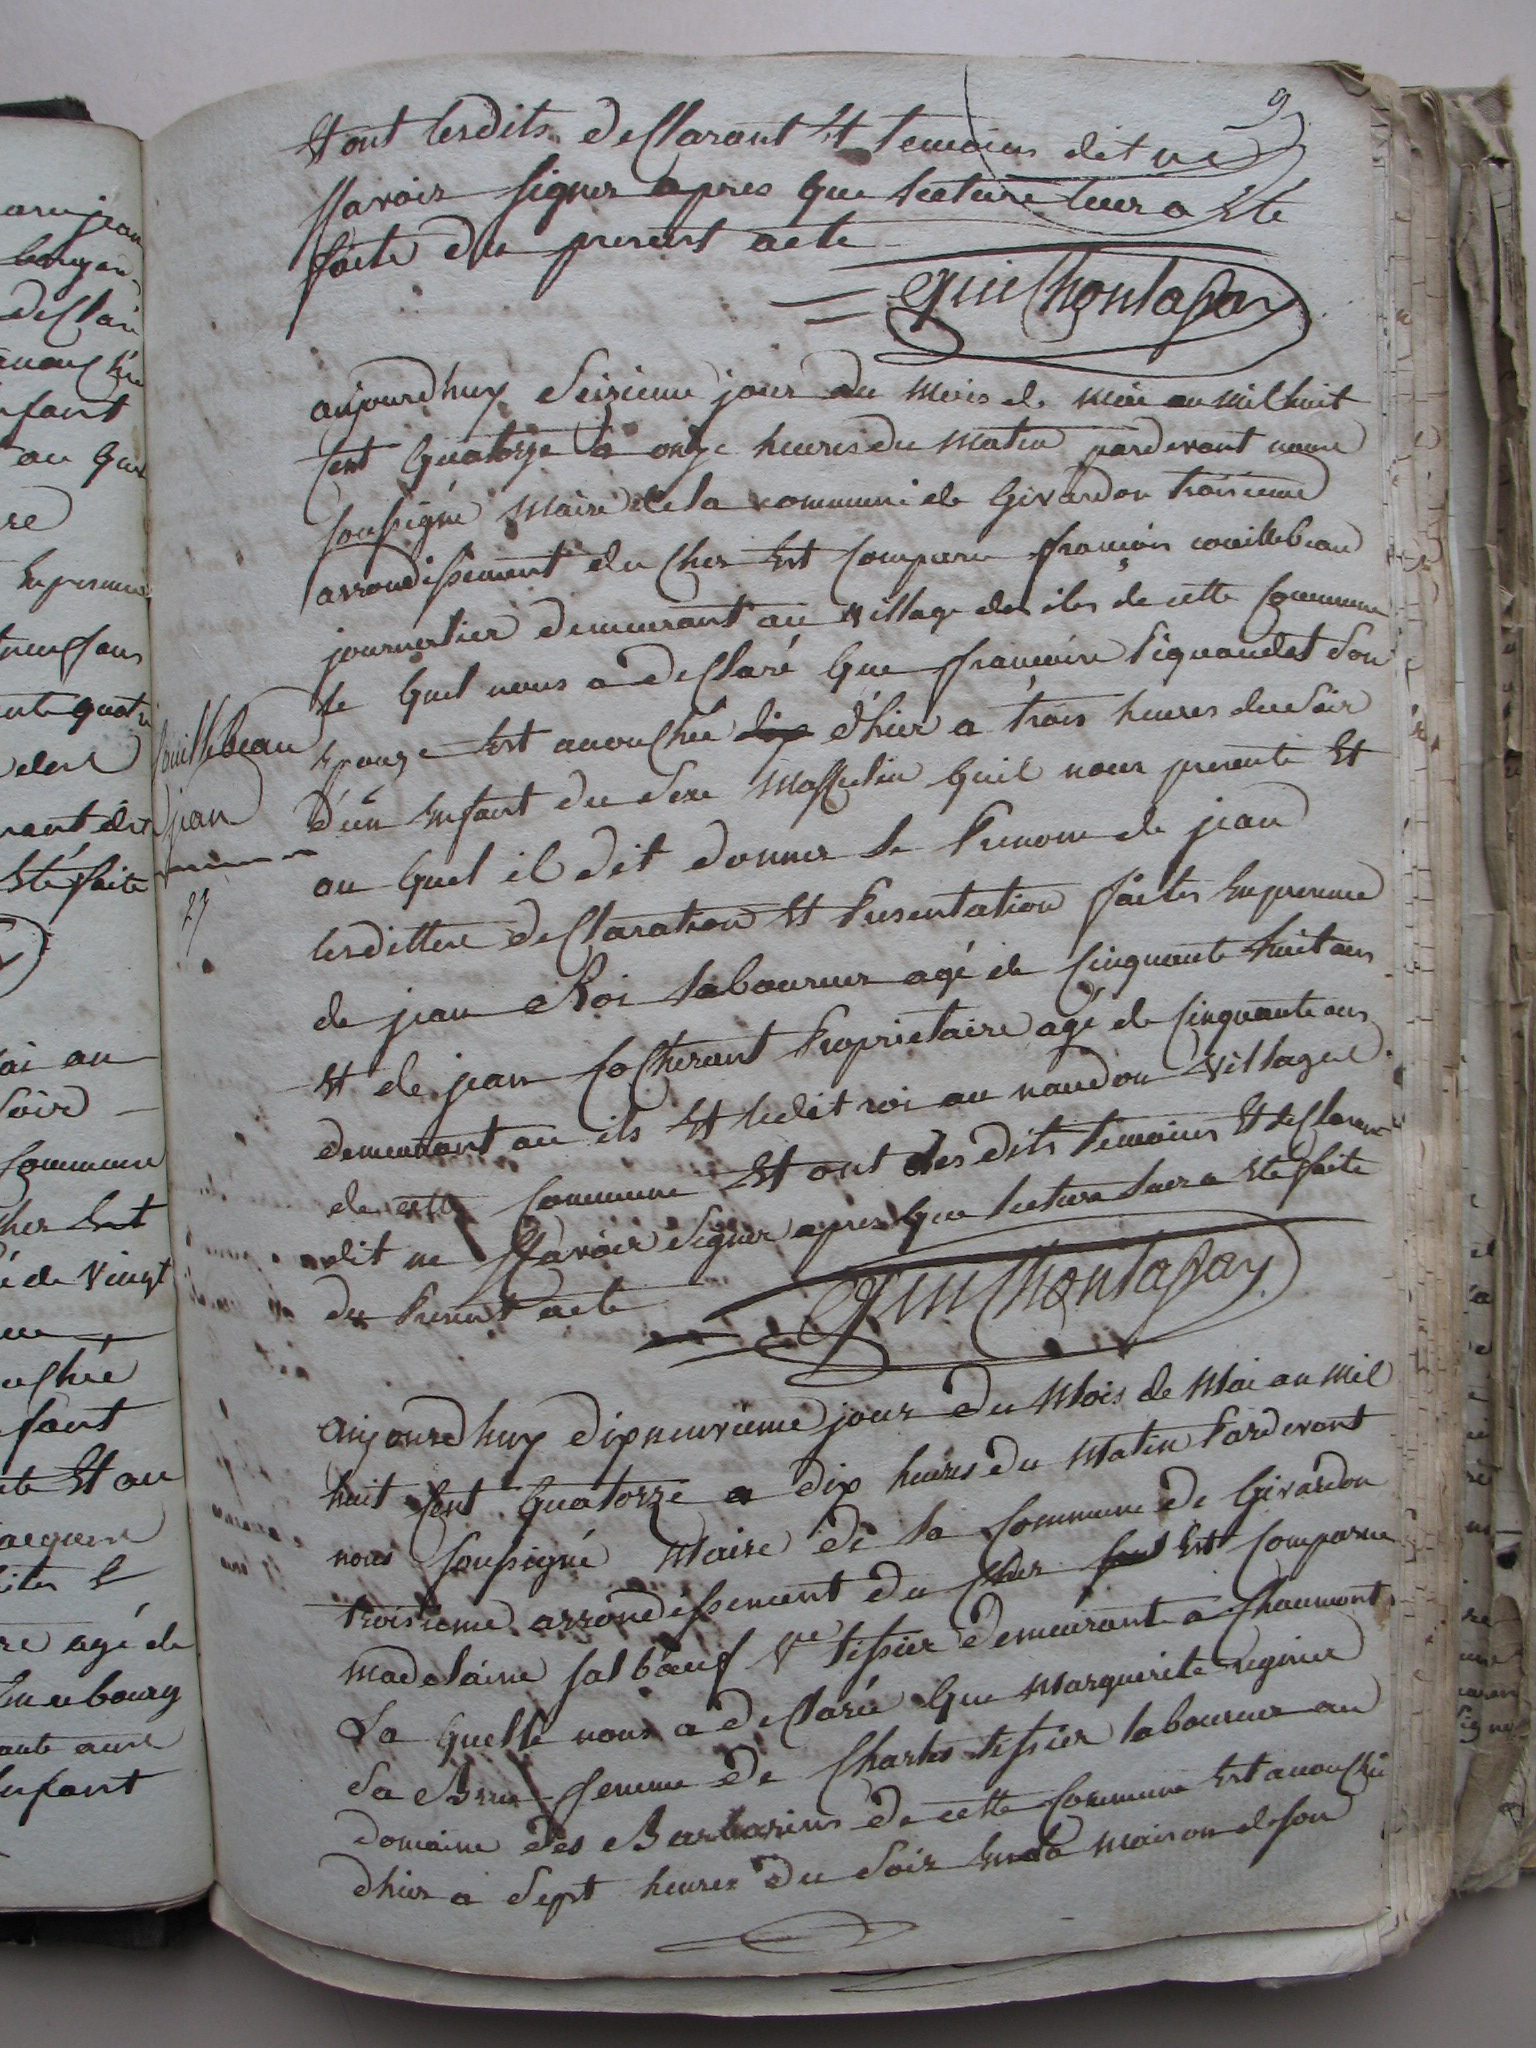 9
Et ont lesdits declarant Et temoins dit ne
scavoir signer apres que lecture leur a Eté
faite du present acte
guilhontasay
aujourdhuy seizieme jour du mois de mai an mil huit
cent quatorze a onze heures du matin pardevant nous
soussigné maire de la commune de Givardon troisieme
arrondissement du Cher Est comparu françois couillebeau
journalier demeurant au village des iles de cette commune
le quel nous a declaré que françoise piquandet son
Epouze Est accouchée d'hier a trois heures du soir
d'un Enfant du sexe masculin quil nous presente Et
au quel il dit donner le prenom de jean
lesdittes declaration Et presentation faites En presence
de jean Roi laboureur agé de cinquante huit ans
Et de jean Cocherant proprietaire agé de cinquante ans
demeurant au ils Et ledit roi au naudon village
de cette commune Et ont lesdits temoins Et declarant
dit ne scavoir signer apres que lecture leur a Eté faite
du present acte
guilhontasay
Couillebeau
jean
23
aujourdhuy dixneuvieme jour du mois de mai an mil
huit cent quatorze a dix heures du matin pardevant
nous soussigné maire de la commune de Givardon
troisieme arrondissement du Cher Est comparue
madelaine salboeuf Ve tissier demeurant a chaumont
La quelle nous a declaré que marguerite regnier
sa Bru femme de Charles tissier laboureur au
domaine des Barbarins de cette commune Est accouchée
dhier a sept heures du soir En la maison de son